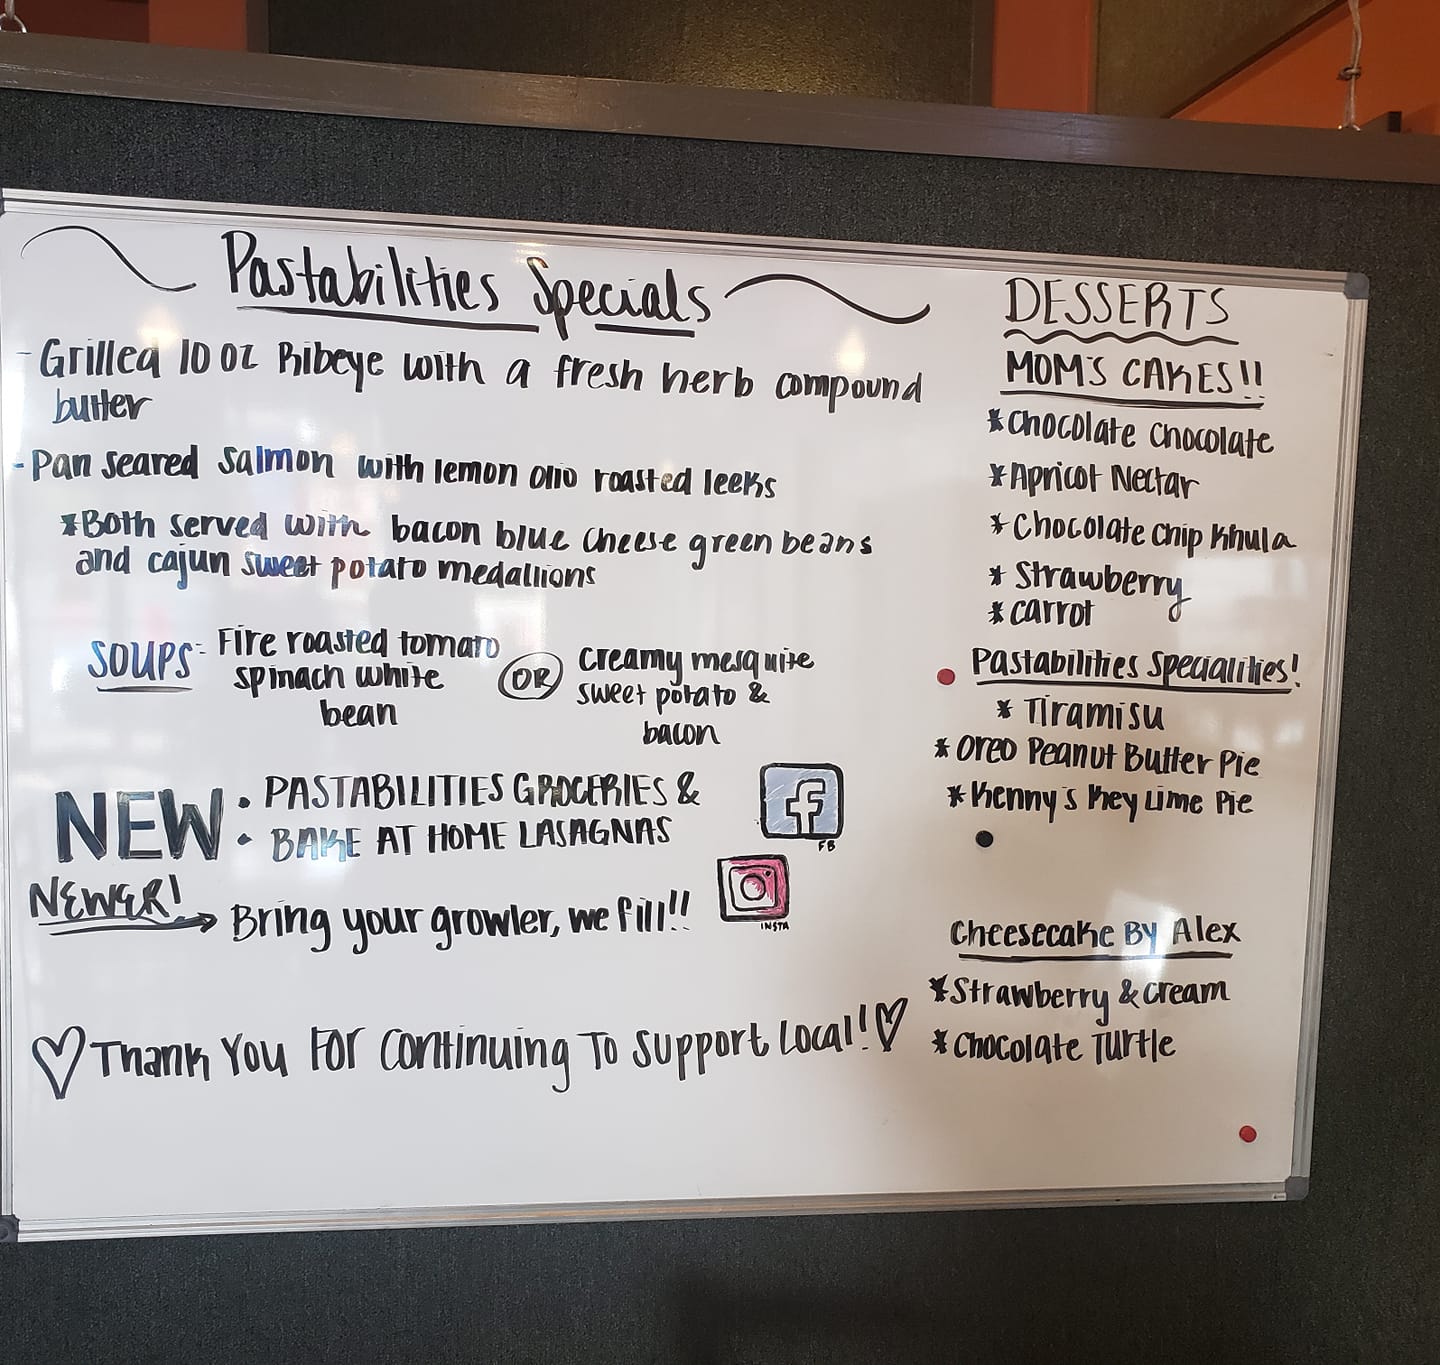 Pastabilities Specials
- Grilled 10 oz Ribeye with a fresh herb compound
butter
- Pan seared salmon with lemon olio roasted leeks
*Both served with bacon blue cheese green beans
and cajun sweet potato medallions
SOUPS- Fire roasted tomato
spinach white
bean
OR
creamy mesquite
sweet potato &
bacon
NEW • PASTABILITIES GROCERIES &
• BAKE AT HOME LASAGNAS
FB
NEWER! → Bring your growler, we fill!!
INSTA
♡ Thank You For Continuing To Support Local! ♡
DESSERTS
MOM'S CAKES!!
*Chocolate Chocolate
*Apricot Nectar
*Chocolate Chip Khula
* Strawberry
* carrot
Pastabilities Specialities!
* Tiramisu
* Oreo Peanut Butter Pie
* Kenny's Key Lime Pie
Cheesecake By Alex
*Strawberry & cream
*Chocolate Turtle